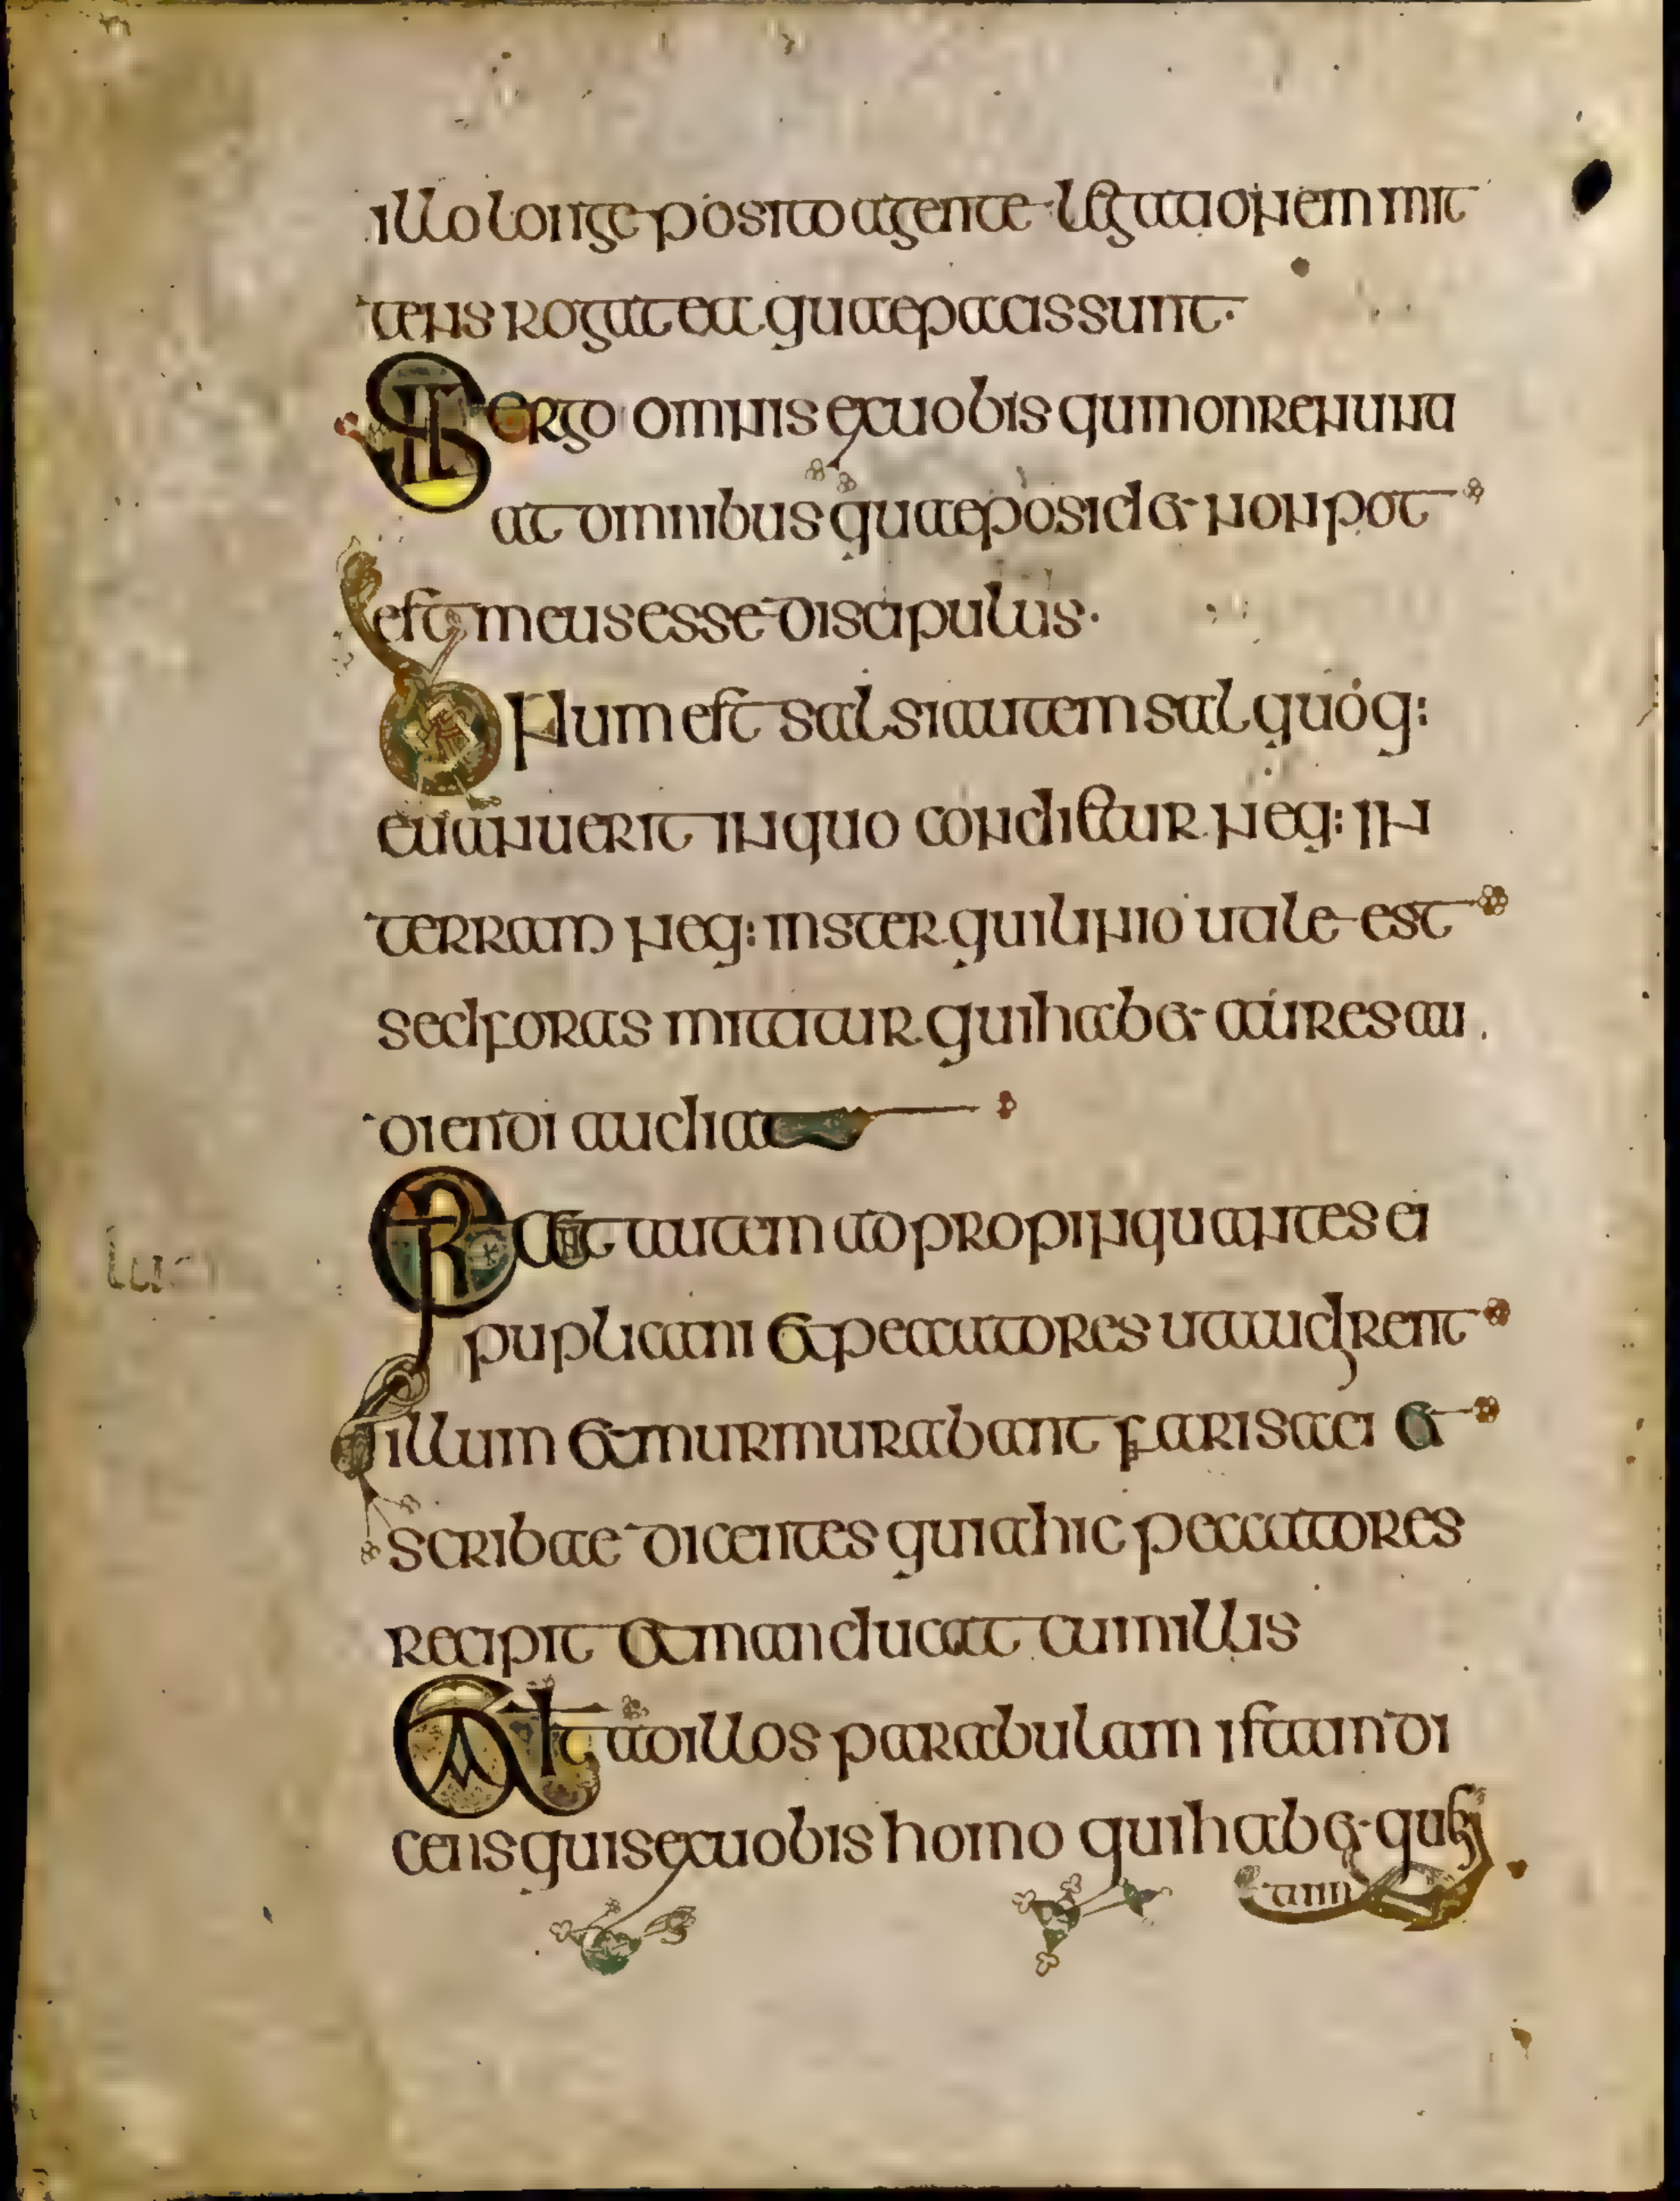 illo longe posito agente legationem mit
tens rogat ea quae pacis sunt·
Sic ergo omnis ex uobis qui non renuncia
at omnibus quae posidet non pot
est meus esse discipulus·
Bonum est sal si autem sal quoq:
euanuerit in quo condietur neq: in
terram neq: in stercquilinio uale est
sed foras mittatur qui habet aures au
diendi audiat
Erant autem adpropinquantes ei
puplicani et peccatores ut audirent
illum et murmurabant farisaei et
scribae dicentes quia hic peccatores
recipit et manducat cum illis
Et ait ad illos parabulam istam di
cens quis ex uobis homo qui habet